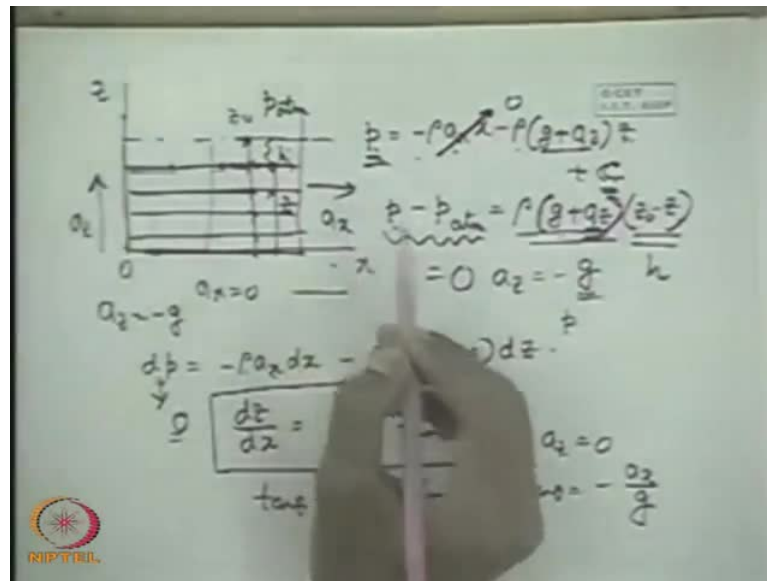 z
z₀ p_atm
h
z
a_z
a_x
0 x
a_x = 0
a_z = -g
p = -ρa_x x - ρ(g+a_z)z
0
+ C₁
p - p_atm = ρ(g+a_z)(z₀-z)
= 0 a_z = -g h
p
dp = -ρa_x dx - )dz.
0 dz/dx =
a_z = 0
tanθ = - a_x/g
NPTEL